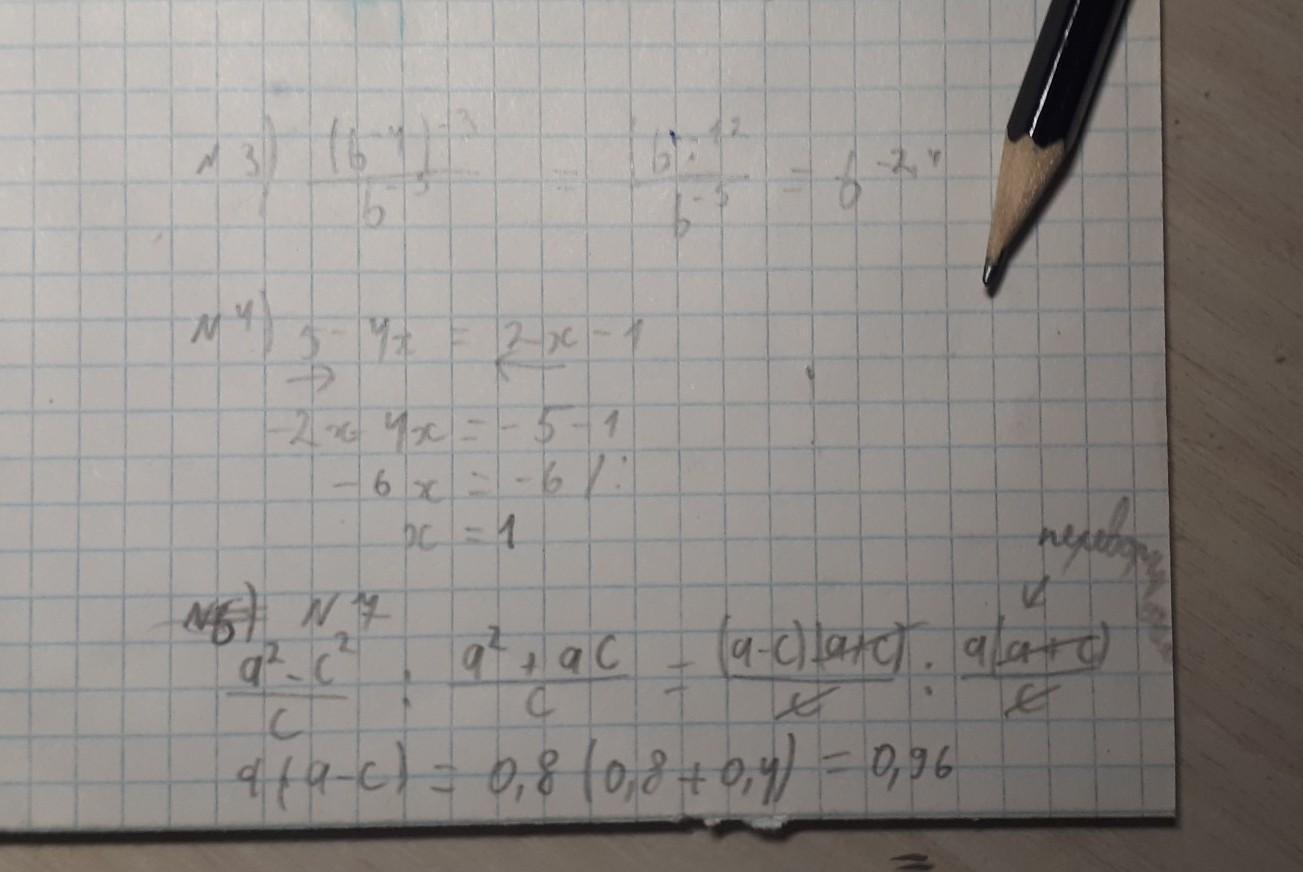 N 3) (b⁻⁴)⁻³ / b⁻⁵ = b⁻¹² / b⁻⁵ = b⁻²·⁴
N 4) 5 - 4x = 2x - 1
-2x - 4x = -5 - 1
-6x = -6 / :
x = 1
N5) N 7
(a² - c²) / c : (a² + ac) / c = (a-c)(a+c) / c : a(a+c) / c
a(a-c) = 0,8 (0,8 + 0,4) = 0,96